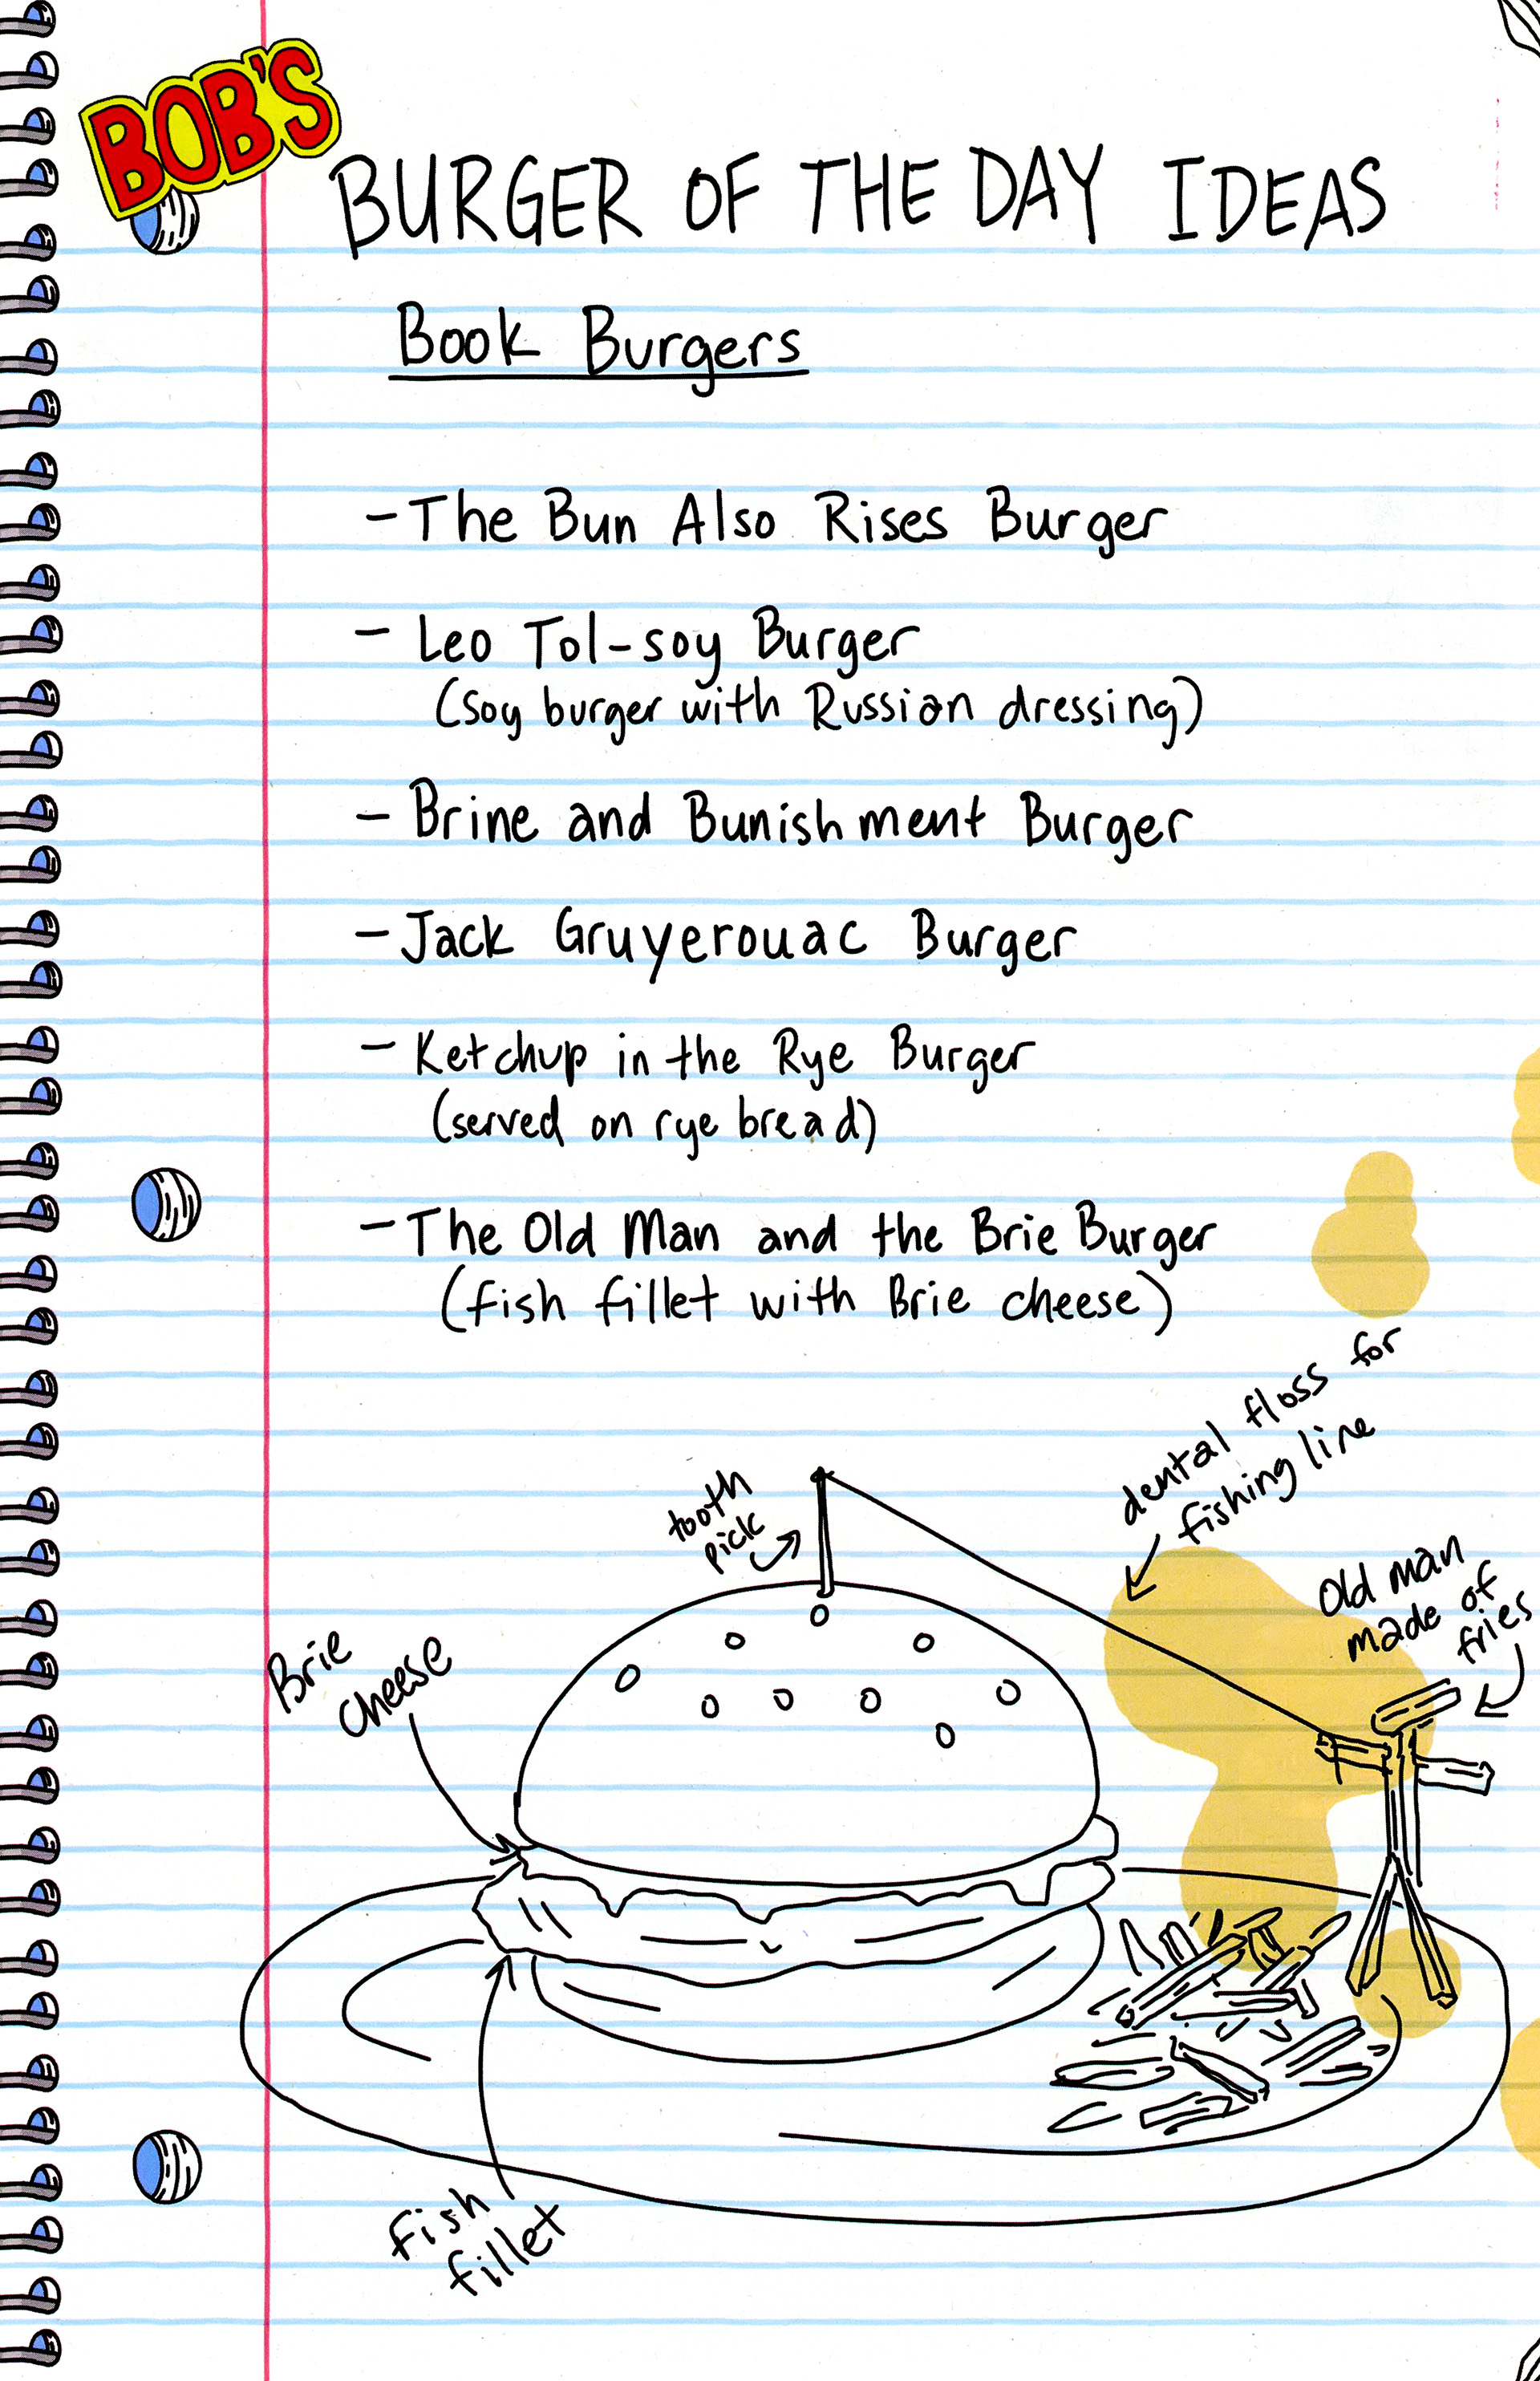 BOB'S
BURGER OF THE DAY IDEAS
Book Burgers
- The Bun Also Rises Burger
- Leo Tol-soy Burger
(soy burger with Russian dressing)
- Brine and Bunishment Burger
- Jack Gruyerouac Burger
- Ketchup in the Rye Burger
(served on rye bread)
- The Old Man and the Brie Burger
(fish fillet with Brie cheese)
dental floss for
fishing line
tooth
pick
Old man
made of
fries
Brie
cheese
Fish
fillet